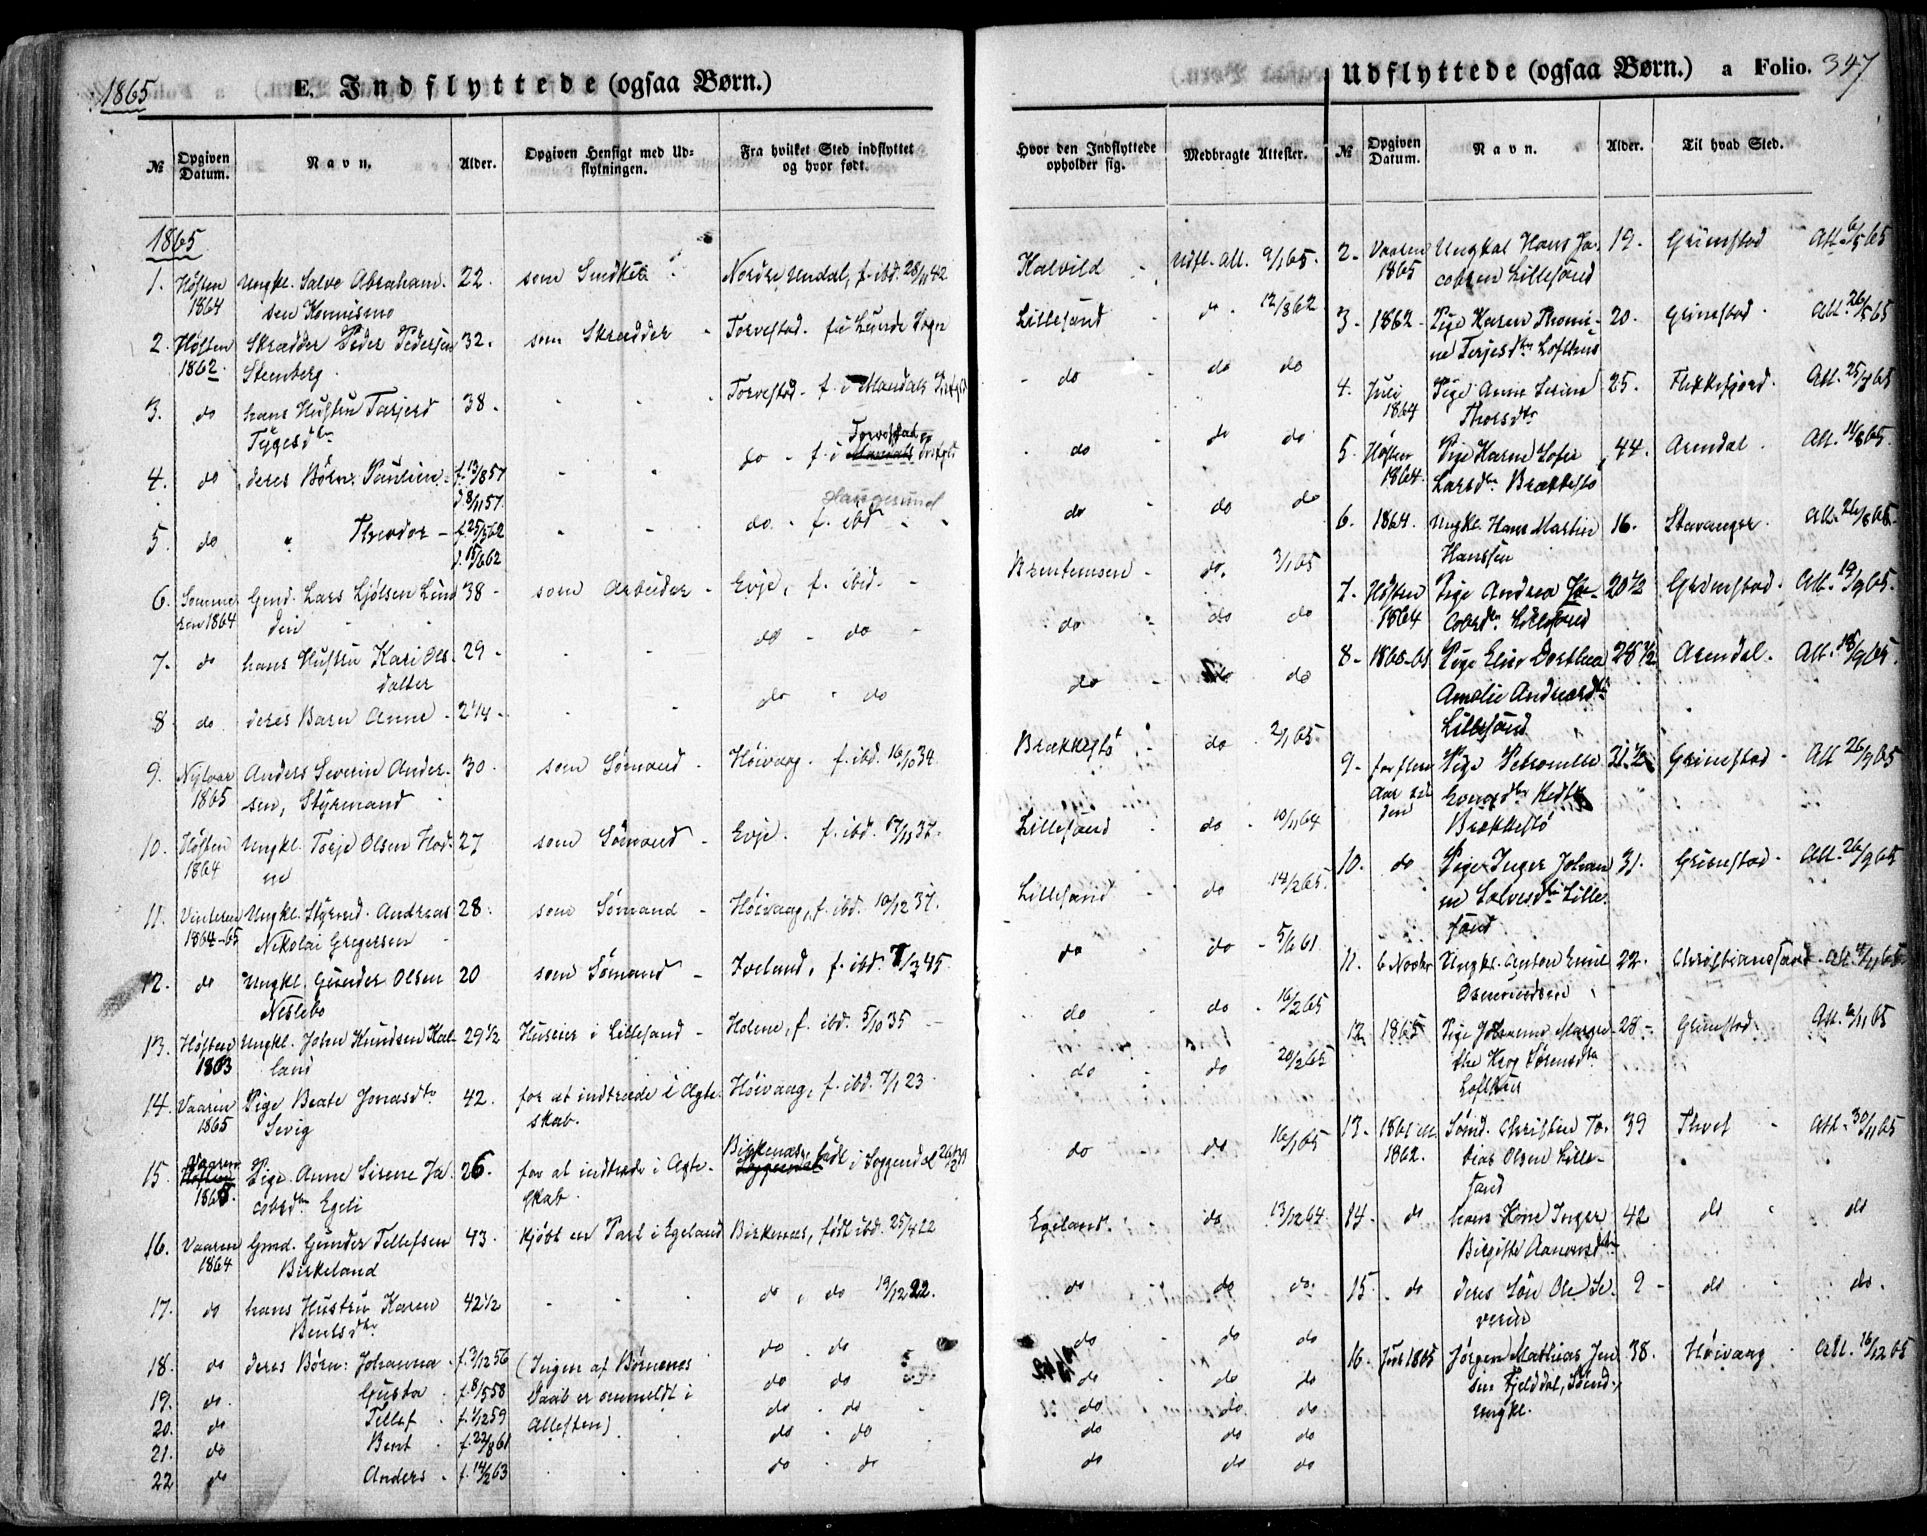 1865
E. Indflyttede (ogsaa Børn.)
№ Opgiven Datum. Navn. Alder. Opgiven Hensigt med Udflytningen. Fra hvilket Sted indflyttet og hvor født.
1865
1. Høsten Ungkl. Salve Abraham- 22. som Smed Nordre Undal, f. ibd. 28/11 42
1864 sen Konnismo
2. Høsten Skrædder Peder Pedersen 32. som Skrædder Torvestad. Lunde Sogn
1862. Stenberg.
3. do hans Hustru Tarjerd 38. Torvestad. f. i Mandals
Tygesdtr
Torvestad
4. do deres Børn: Paulien f. 13/8 57 do f. i Mandals
d. 8/11 57.
Haugesund
5. do " Theodor f. 25/3 62 do f. ibd
d. 15/6 62
6. Somme- Gmd. Lars Ljølsen Lun- 38 som Arbeider Evje, f. ibid.
ren 1864 den
7. do hans Hustru Kari Ols- 29 do do
datter
8 do deres Barn Anne 2 1/4 do do
9. Nytaar Anders Severin Ander- 30 som Sømand Høivaag, f. ibd. 16/10 34
1865 sen, Styrmand
10. Høsten Ungkl. Terje Olsen Hod- 27 som Sømand Evje. f. ibd. 17/11 37.
1864 ne
11. Vinteren Ungkl. Styrmd. Andreas 28 som Sømand Høivaag, f. ibd. 10/12 37.
1864-65 Nikolai Gregersen
12. do Ungkl. Gunder Olsen 20 som Sømand Iveland, f. ibd. 7/3 45.
Neslebo
13. Høsten Ungkl. John Knudsen Kal- 29 1/2 Huseier i Lillesand Holme, f. ibd. 5/10 35
1863 land
14. Vaaren Pige Beate Jonasdtr 42. for at indtræde i Ægte- Høivaag, f. ibd. 7/1 23.
1865 Sevig skab.
Vaaren
15. Høsten Pige Anne Sirene Ja- 26 for at indtræde i Ægte- Birkenæs, født i Soggendal
1865. cobsdtr Egeli skab.
16. Vaaren Gmd. Gunder Tellefsen 43. kjøbt en Part i Egeland Birkenæs, født ibd. 25/4 22
1864 Birkeland
17. do hans Hustru Karen 42 1/2 do, do 19/12 22.
Bentsdtr
18. do deres Børn: Johanna f. 3/12 56 (Ingen af Børnenes do. do
19. do. Gusta f. 8/5 58 Daab er anmeldt i do do
20. do Tellef f. 1/2 59 Attesten) do do.
21. do Bent f. 22/8 61 do do
22 do Anders f. 14/2 63 do do
Udflyttede (ogsaa Børn.) a Folio. 347
Hvor den Indflyttede opholder sig. Medbragte Attester. № Opgiven Datum. Navn. Alder. Til hvad Sted.
Kalvild Udfl. Att. 9/1 65. 2. Vaaren Ungkal Hans Ja- 19. Grimstad Att. 6/5 65
1865 cobsen Lillesand
Lillesand do 12/8 62 3 1862 Pige Karen Thomi- 20. Grimstad. Att. 26/5 65
ne Terjesdtr Lofthus
do do do 4. Juli Pige Anne Serine 25. Flekkefjord. Att. 25/7 65
1864 Thorsdtr
do do do 5 Høsten Pige Karne Sofie 44. Arendal. Att. 11/8 65.
1864. Larsdtr Brækkestø
do do do 6. 1864. Ungkl. Hans Martin 16. Stavanger. Att. 26/8 65
Hanssen
do. 3/1 65 7. Høsten Pige Andrea Ja- 20 1/2 Grimstad. Att. 19/9 65.
do do do 1864 cobsdtr Lillesand
do do do 8 Pige Elise Dorthea 28 1/2 Arendal. Att. 18/9 65.
Amalie Andreasdtr
Lillesand
Brækkestø do 2/1 65. 9 for flere Pige Petronelle 31 1/2 Grimstad Att 26/9 65
Aar si-
den Brækkestø
Lillesand do 10/11 64 10. do Pige Inger Johan- 31. Grimstad Att. 26/9 65
Lillesand do 14/2 65. ne Salvesdtr Lille-
sand.
do do 5/6 61. 11. 6 Novbr Ungkl. Anton Emil 22. Christianssand Att. 4/11 65
Osmundsen
do do 16/2 65 12 1865 Pige Johanne Margre- 28 Grimstad. Att. 6/11 65
do do 20/2 65 the Krog Sørensdtr
Lofthus
do do 16/1 65 13. 1861 Sømd. Christen To- 39 Thvet Att. 30/11 65
1862. bias Olsen Lille-
sand
Egeland. do 13/12 64 14. do hans Kone Inger 42 do do
Birgitte Aanonsdtr
do do do. 15. do deres Søn Ole Se- 9 do do.
verin
do do do 16. Juni 1865 Jørgen Mathias Jen- 38. Høivaag Att. 16/12 65
do do do sen Fjelddal, Sømd.,
do do. do Ungkl.
do do do
do do do